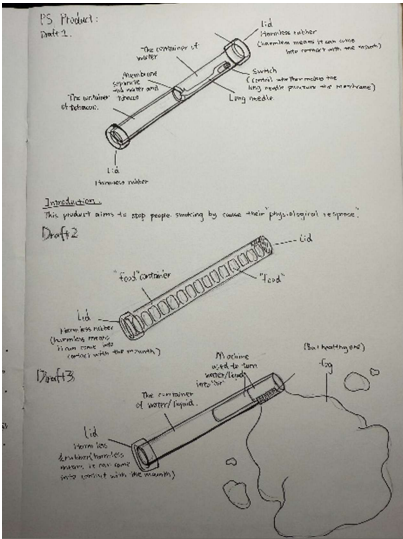 PS Product:
Draft 1.
Lid
Harmless rubber
(harmless means it can come
into contact with the mouth)
The container of
water
Membrane
separate
water and
tobacco
The container
of tobacco.
Switch
long needle puncture the membrane)
Long needle
Lid
Harmless rubber
Introduction.
This product aims to stop people smoking by cause their "physiological response".
Draft 2
Lid
"food" container
"food"
Lid
Harmless rubber
(harmless means
it can come into
contact with the mouth)
Draft 3
Machine
used to turn
water/liquid
into
(But healthy one)
fog
The container
of water/liquid.
Lid
Harmless
rubber (harmless
means, it can come
into contact with the mouth)